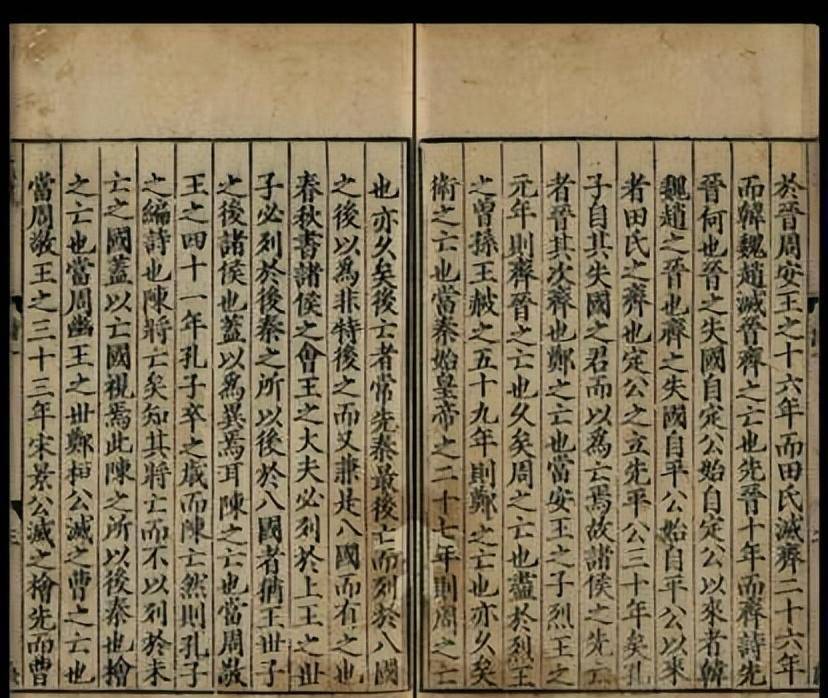 於晉周安王之十六年而田氏滅齊二十六年
而韓魏趙滅晉齊之亡也先晉十年而齊詩先
晉何也晉之失國自定公始自定公以來者韓
魏趙之晉也齊之失國自平公始自平公以來
者田氏之齊也定公之立先平公三十年矣孔
子自其失國之君而以爲亡焉故諸侯之先亡
者晉其次齊也鄭之亡也當安王之子烈王之
元年則齊晉之亡也久矣周之亡也盡於烈王
之曾孫王赧之五十九年則鄭之亡也亦久矣
衛之亡也當秦始皇帝之二十七年則周之亡
也亦久矣後亡者常先秦最後亡而列於八國
之後以爲非特後之而又兼是八國而有之也
春秋書諸侯之會王之大夫必列於上王之世
子必列於後秦之所以後於八國者猶王世子
之後諸侯也蓋以爲異焉耳陳之亡也當周敬
王之四十一年孔子卒之歲而陳亡然則孔子
之編詩也陳將亡矣知其將亡而不以列於未
亡之國蓋以亡國視焉此陳之所以後秦也檜
之亡也當周幽王之世鄭桓公滅之曹之亡也
當周敬王之三十三年宋景公滅之檜先而曹